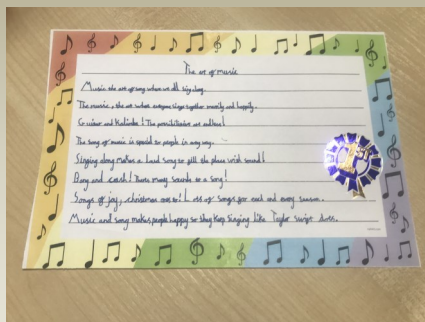 The art of music
Music the art of song when we all sing along.
The music, the art where everyone sings together merrily and happily.
Guitar and Kalimba! The possibilities are endless!
The song of music is special to people in any way.
Singing along makes a loud song to fill the place with sound!
Bang and crash! Those many sounds to a song!
Songs of joy, christmas ones to! Lots of songs for each and every season.
Music and song makes people happy so they keep singing like Taylor swift does.
1st